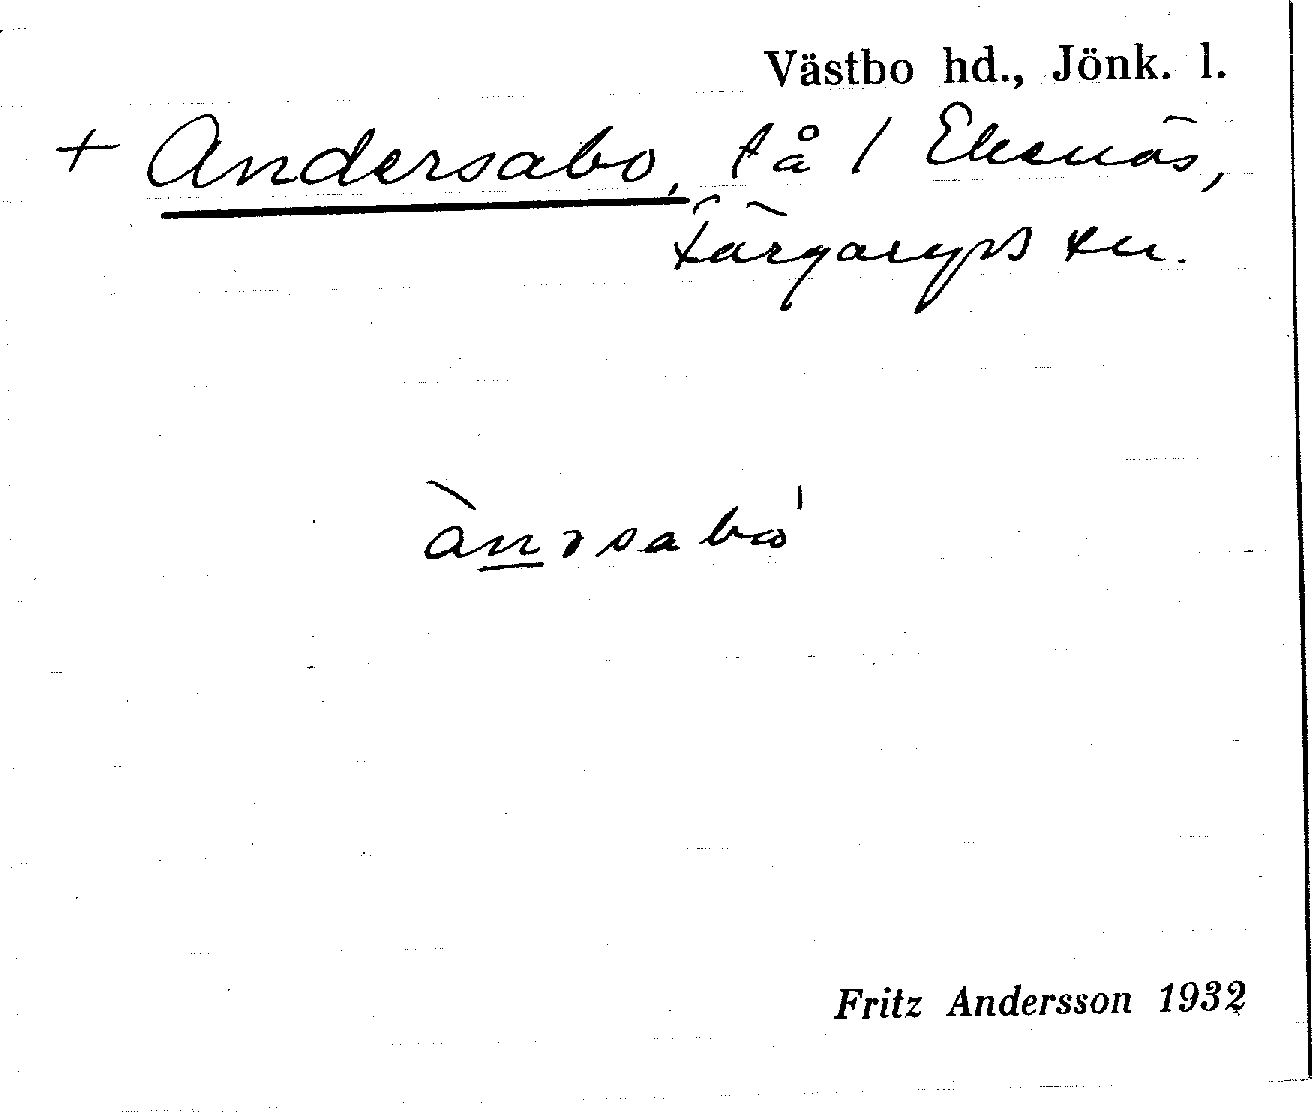 Västbo hd., Jönk. l.
+ Andersabo, tå / Ekenäs,
Färgaryds sn.
Fritz Andersson 1932